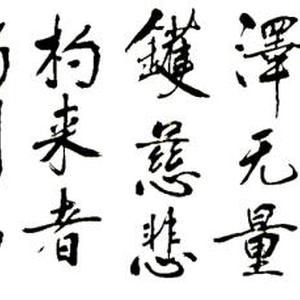 澤无量
鑊慈悲
杓来者